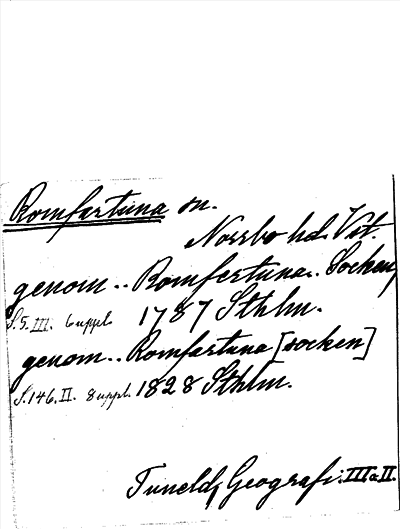 Romfartuna sn.
Norrbo hd. Vst.
genom .. Romfertuna .. Socken,
S.5. III. 6 uppl. 1787 Sthlm.
genom .. Romfartuna [socken]
S.146. II. 8 uppl. 1828 Sthlm.
Tunelds Geografi. III o. II.